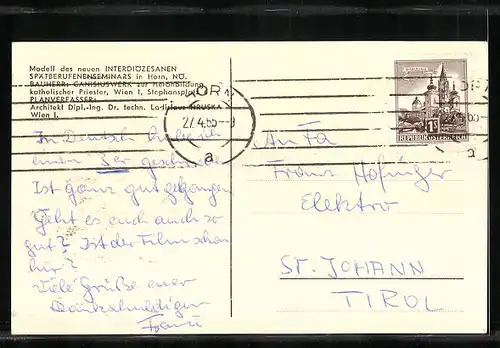 Modell des neuen INTERDIÖZESANEN
SPÄTBERUFENENSEMINARS in Horn, NÖ.
BAUHERR: CANISIUSWERK zur Heranbildung
katholischer Priester, Wien I, Stephansplatz
PLANVERFASSER:
Architekt Dipl.-Ing. Dr. techn. Ladislaus HRUSKA
Wien I.
HORN
27.4.65
a
MARIAZELL
1S
REPUBLIK ÖSTERREICH
In Deutsch habe ich
einen 3er geschrieben
Ist ganz gut gegangen
Geht es euch auch so
gut? Ist der Film schon
hier?
Viele Grüße euer
Dankschuldiger
Franz
An Fa
Franz Hofinger
Elektro
ST. JOHANN
TIROL